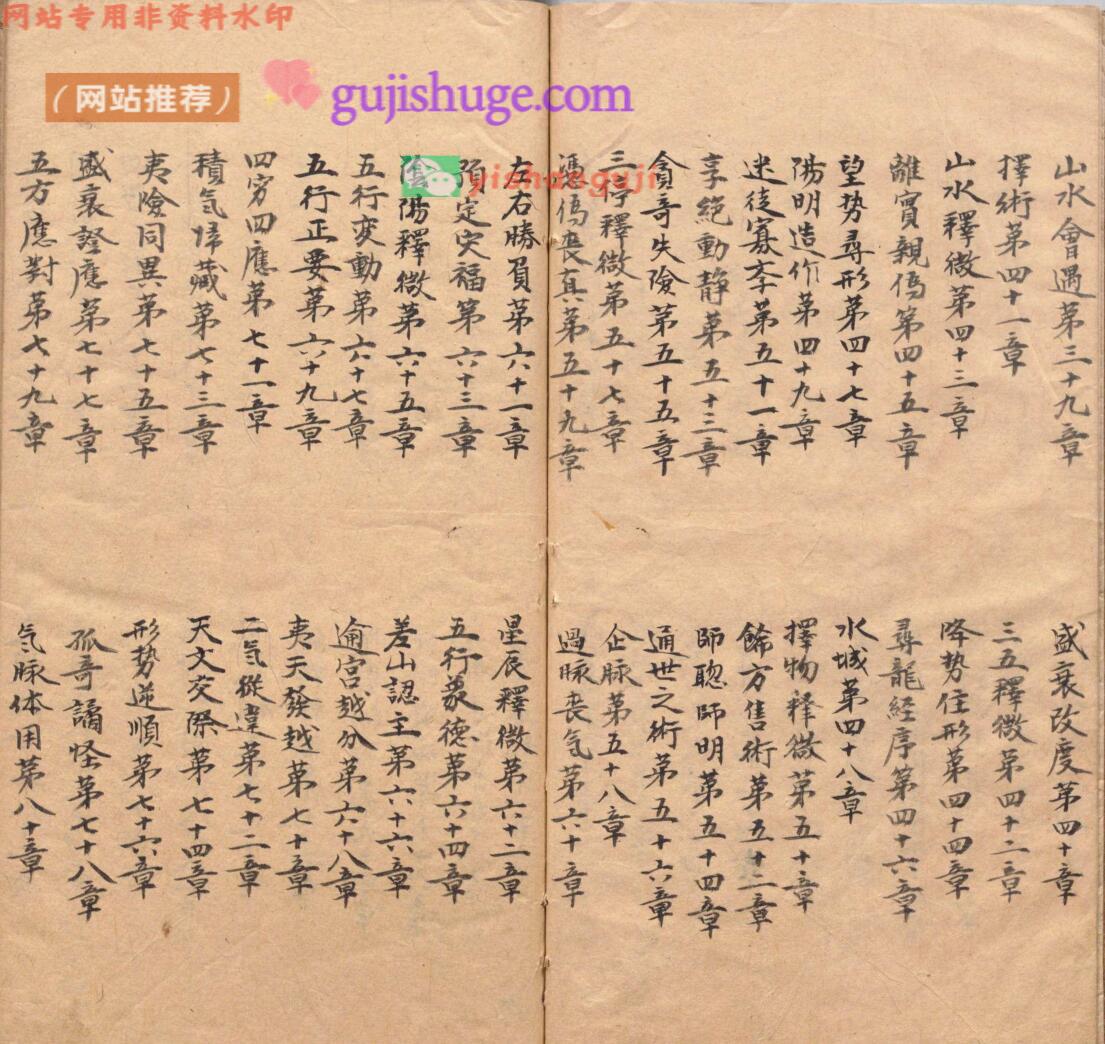 网站专用非资料水印
（网站推荐）
gujishuge.com
yishanguji
山水會遇第三十九章
盛衰改度第四十章
擇術第四十一章
三五釋微第四十二章
山水釋微第四十三章
降势住形第四十四章
離實親偽第四十五章
尋龍經序第四十六章
望势尋形第四十七章
水城第四十八章
陽明造作第四十九章
擇物释微第五十章
迷徒寡李第五十一章
餙方售術第五十二章
享絕動静第五十三章
師聦師明第五十四章
貪奇失險第五十五章
通世之術第五十六章
三停釋微第五十七章
企脉第五十八章
憑偽喪真第五十九章
過脉丧气第六十章
左右勝負第六十一章
星辰釋微第六十二章
預定灾福第六十三章
五行象德第六十四章
陰陽釋微第六十五章
差山認主第六十六章
五行变動第六十七章
逾宫越分第六十八章
五行正要第六十九章
夷天發越第七十章
四穷四應第七十一章
二气從違第七十二章
積气歸藏第七十三章
天文交際第七十四章
夷險同異第七十五章
形势逆順第七十六章
盛衰證應第七十七章
孤奇譎怪第七十八章
五方應對第七十九章
气脉体用第八十章